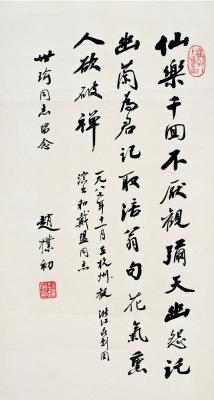 仙樂千回不厭觀彌天幽怨託
幽蘭為君記取涪翁句花氣熏
人欲破禪
一九八六年十一月在杭州觀浙江昆剧团
演出和戴盟同志
世瑜同志留念
趙樸初